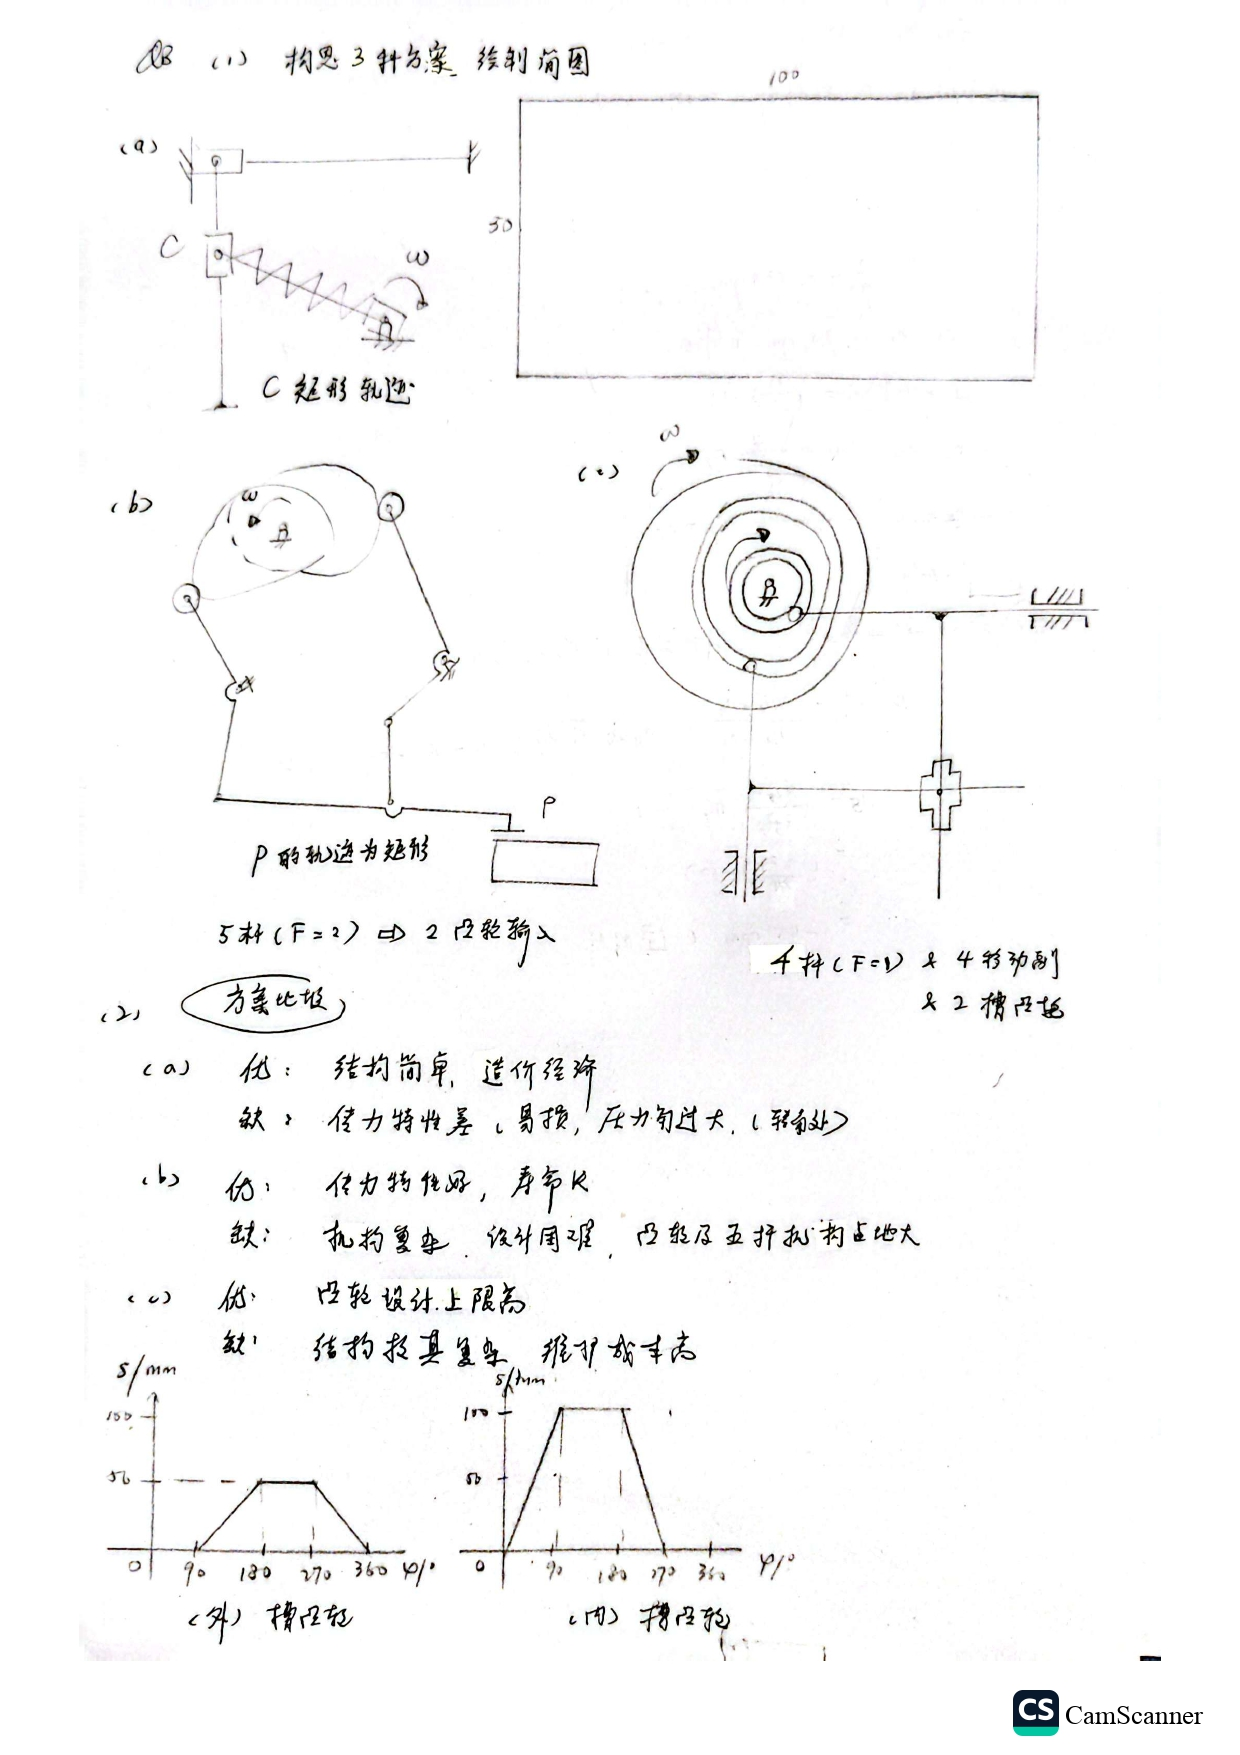 Q3 (1) 构思3种方案 绘制简图
100
(a)
50
C
ω
C 矩形轨迹
ω
(b)
ω
(c)
P
P的轨迹为矩形
5杆(F=2) ⇨ 2凸轮输入
4杆(F=1) & 4移动副
& 2槽凸轮
(2) 方案比较
(a) 优: 结构简单, 造价经济
缺: 传力特性差(易损, 压力角过大, (转角处)
(b) 优: 传力特性好, 寿命长
缺: 机构复杂, 设计困难, 凸轮及五杆机构占地大
(c) 优: 凸轮设计上限高
缺: 结构极其复杂 维护成本高
s/mm
100
50
0 90 180 270 360 φ/°
(外) 槽凸轮
s/mm
100
50
0 90 180 270 360 φ/°
(内) 槽凸轮
CS CamScanner